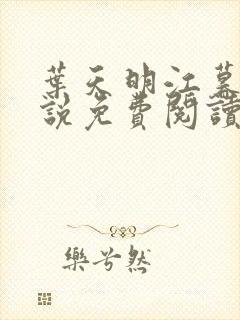 葉天明江慕
說免費閱讀
樂兮然